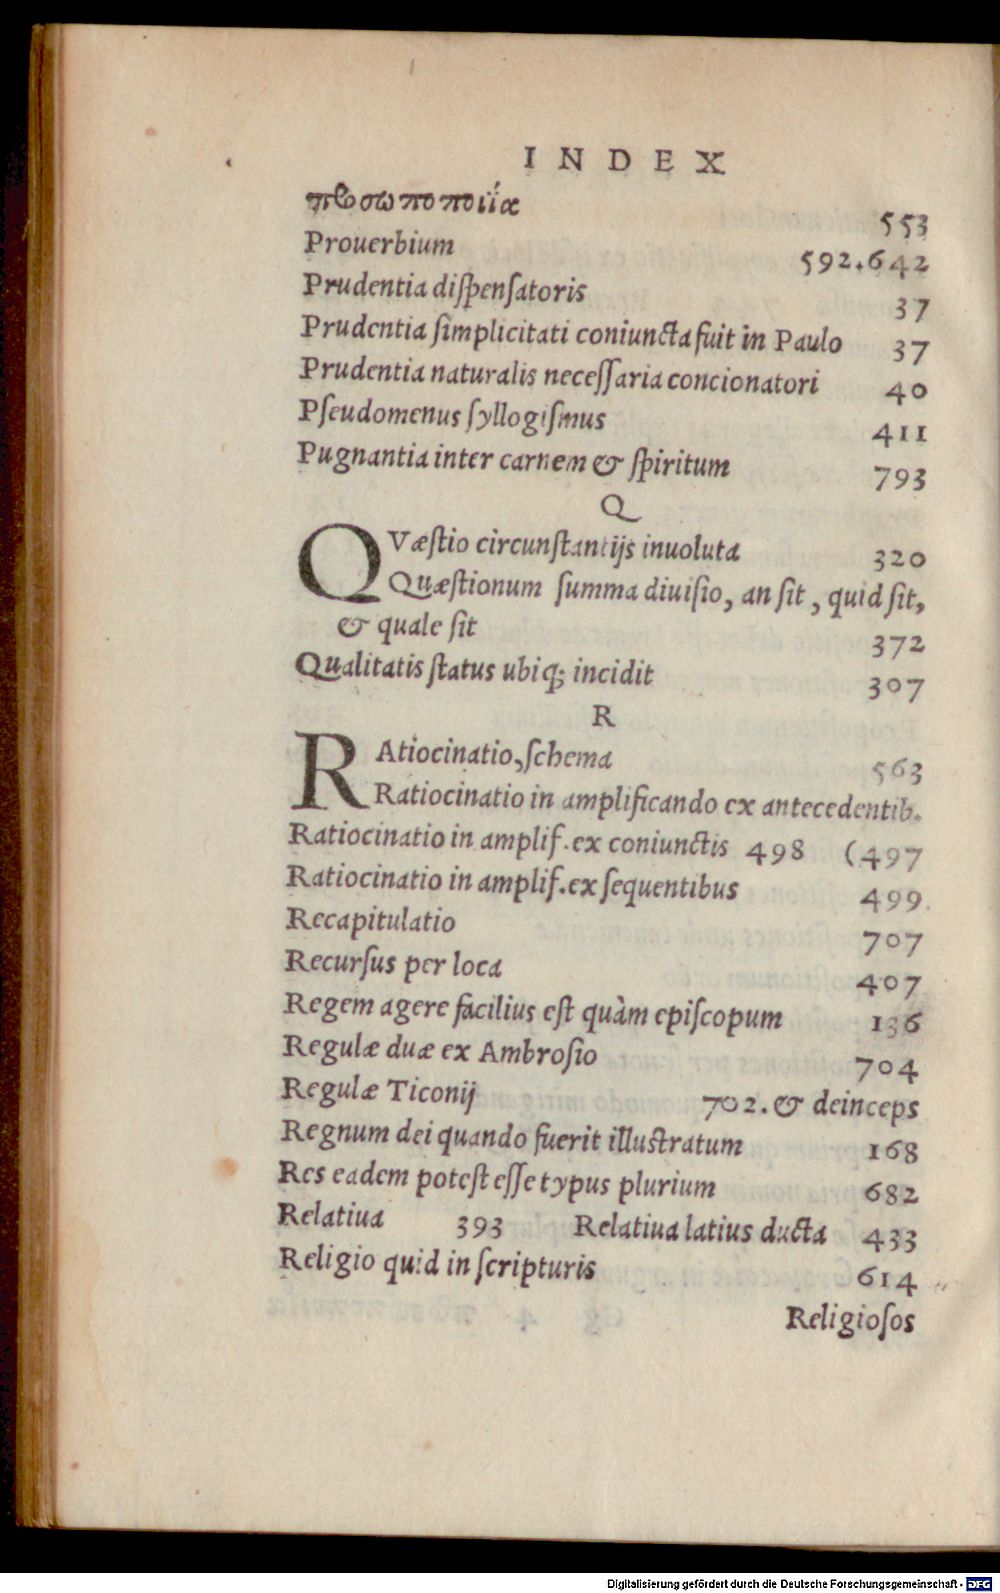 INDEX
προσωποποιΐα 553
Prouerbium 592.642
Prudentia diſpenſatoris 37
Prudentia ſimplicitati coniuncta fuit in Paulo 37
Prudentia naturalis neceſſaria concionatori 40
Pſeudomenus ſyllogiſmus 411
Pugnantia inter carnem & ſpiritum 793
Q
QVæſtio circunſtantijs inuoluta 320
Quæſtionum ſumma diuiſio, an ſit, quid ſit,
& quale ſit 372
Qualitatis ſtatus ubiq; incidit 307
R
RAtiocinatio, ſchema 563
Ratiocinatio in amplificando ex antecedentib.
Ratiocinatio in amplif. ex coniunctis 498 (497
Ratiocinatio in amplif. ex ſequentibus 499
Recapitulatio 707
Recurſus per loca 407
Regem agere facilius eſt quàm epiſcopum 136
Regulæ duæ ex Ambroſio 704
Regulæ Ticonij 702. & deinceps
Regnum dei quando fuerit illuſtratum 168
Res eadem poteſt eſſe typus plurium 682
Relatiua 393 Relatiua latius ducta 433
Religio quid in ſcripturis 614
Religioſos
Digitalisierung gefördert durch die Deutsche Forschungsgemeinschaft - DFG